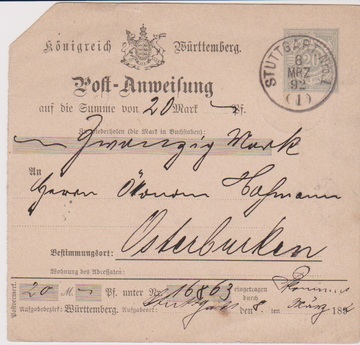 Königreich Württemberg.
STUTTGART No. 1
8
MRZ
92
(1)
Post-Anweisung
auf die Summe von 20 Mark — Pf.
(die Mark in Buchstaben)
Zwanzig Mark
An
Herrn Ökonom Hofmann
Bestimmungsort: Osterburken
Wohnung des Adressaten:
20 M. — Pf. unter Nr. 16863 eingetragen durch
Aufgabebezirk: Württemberg. Aufgabeort: Stuttgart den 8. ten März 189
Postvermerk.